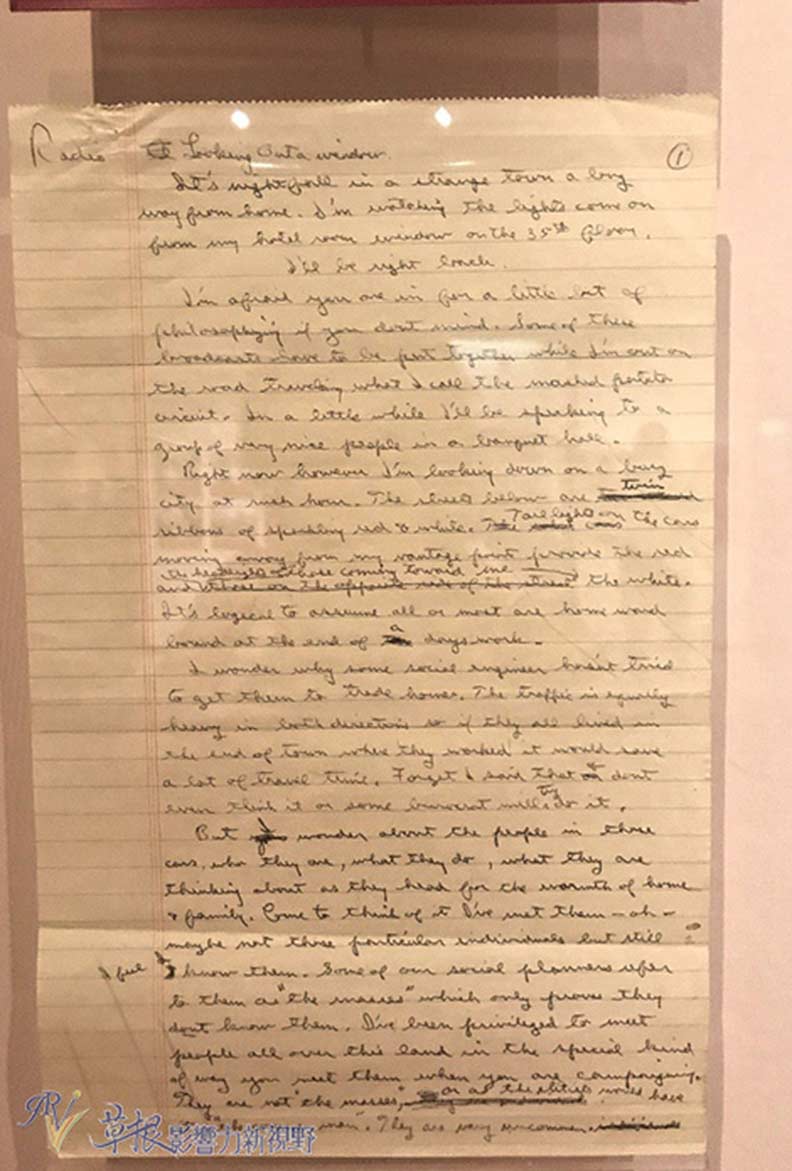 Radio Looking Out a window. 1
It's nightfall in a strange town a long
way from home. I'm watching the lights come on
from my hotel room window on the 35th floor.
I'll be right back.
I'm afraid you are in for a little bit of
philosophizing if you dont mind. Some of these
broadcasts have to be put together while I'm out on
the road traveling what I call the mashed potato
circuit. In a little while I'll be speaking to a
group of very nice people in a banquet hall.
Right now however I'm looking down on a busy
city at rush hour. The streets below are twin
ribbons of sparkling red & white. Tail lights on the cars
moving away from my vantage point provide the red
the headlights of those coming toward me
and those on the opposite side of the street the white.
It's logical to assume all or most are home ward
bound at the end of a days work.
I wonder why some social engineer hasn't tried
to get them to trade homes. The traffic is equally
heavy in both directions so if they all lived in
the end of town where they worked it would save
a lot of travel time. Forget I said that & dont
even think it or some burocrat will try do it.
But I wonder about the people in those
cars, who they are, what they do, what they are
thinking about as they head for the warmth of home
& family. Come to think of it I've met them - oh -
maybe not those particular individuals but still
I feel I know them. Some of our social planners refer
to them as "the masses" which only proves they
dont know them. I've been privileged to meet
people all over this land in the special kind
of way you meet them when you are campaigning.
They are not "the masses," or as the elitists would have
man". They are very uncommon.
草根影響力新視野